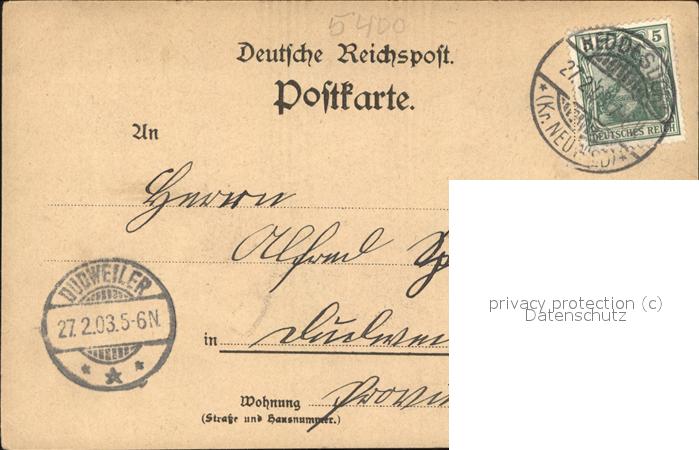 5400
Deutsche Reichspost.
Postkarte.
An
HEDDESD
27.2.
* (Kr. NEUWIED) *
5
DEUTSCHES REICH
Herrn
Alfred Sp
privacy protection (c)
Datenschutz
DUDWEILER
27.2.03.5-6N.
in Dudwei
Wohnung
(Straße und Hausnummer.)
Provi